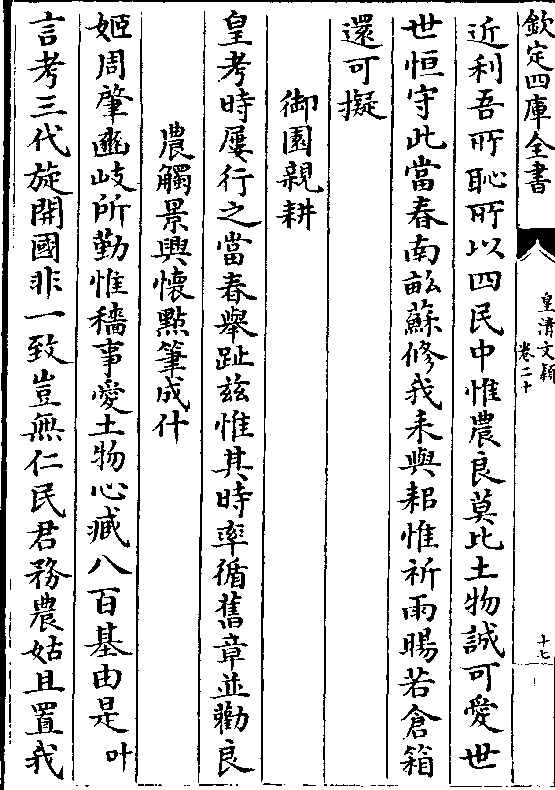 欽定四庫全書
皇清文穎
卷二十
十七
近利吾所恥所以四民中惟農良莫比土物誠可愛世
世恒守此當春南畝蘇修我耒與耜惟祈雨暘若倉箱
還可擬
御園親耕
皇考時屢行之當春舉趾兹惟其時率循舊章並勸良
農觸景興懷點筆成什
姬周肇豳岐所勤惟穡事愛土物心臧八百基由是叶
言考三代旋開國非一致豈無仁民君務農姑且置我